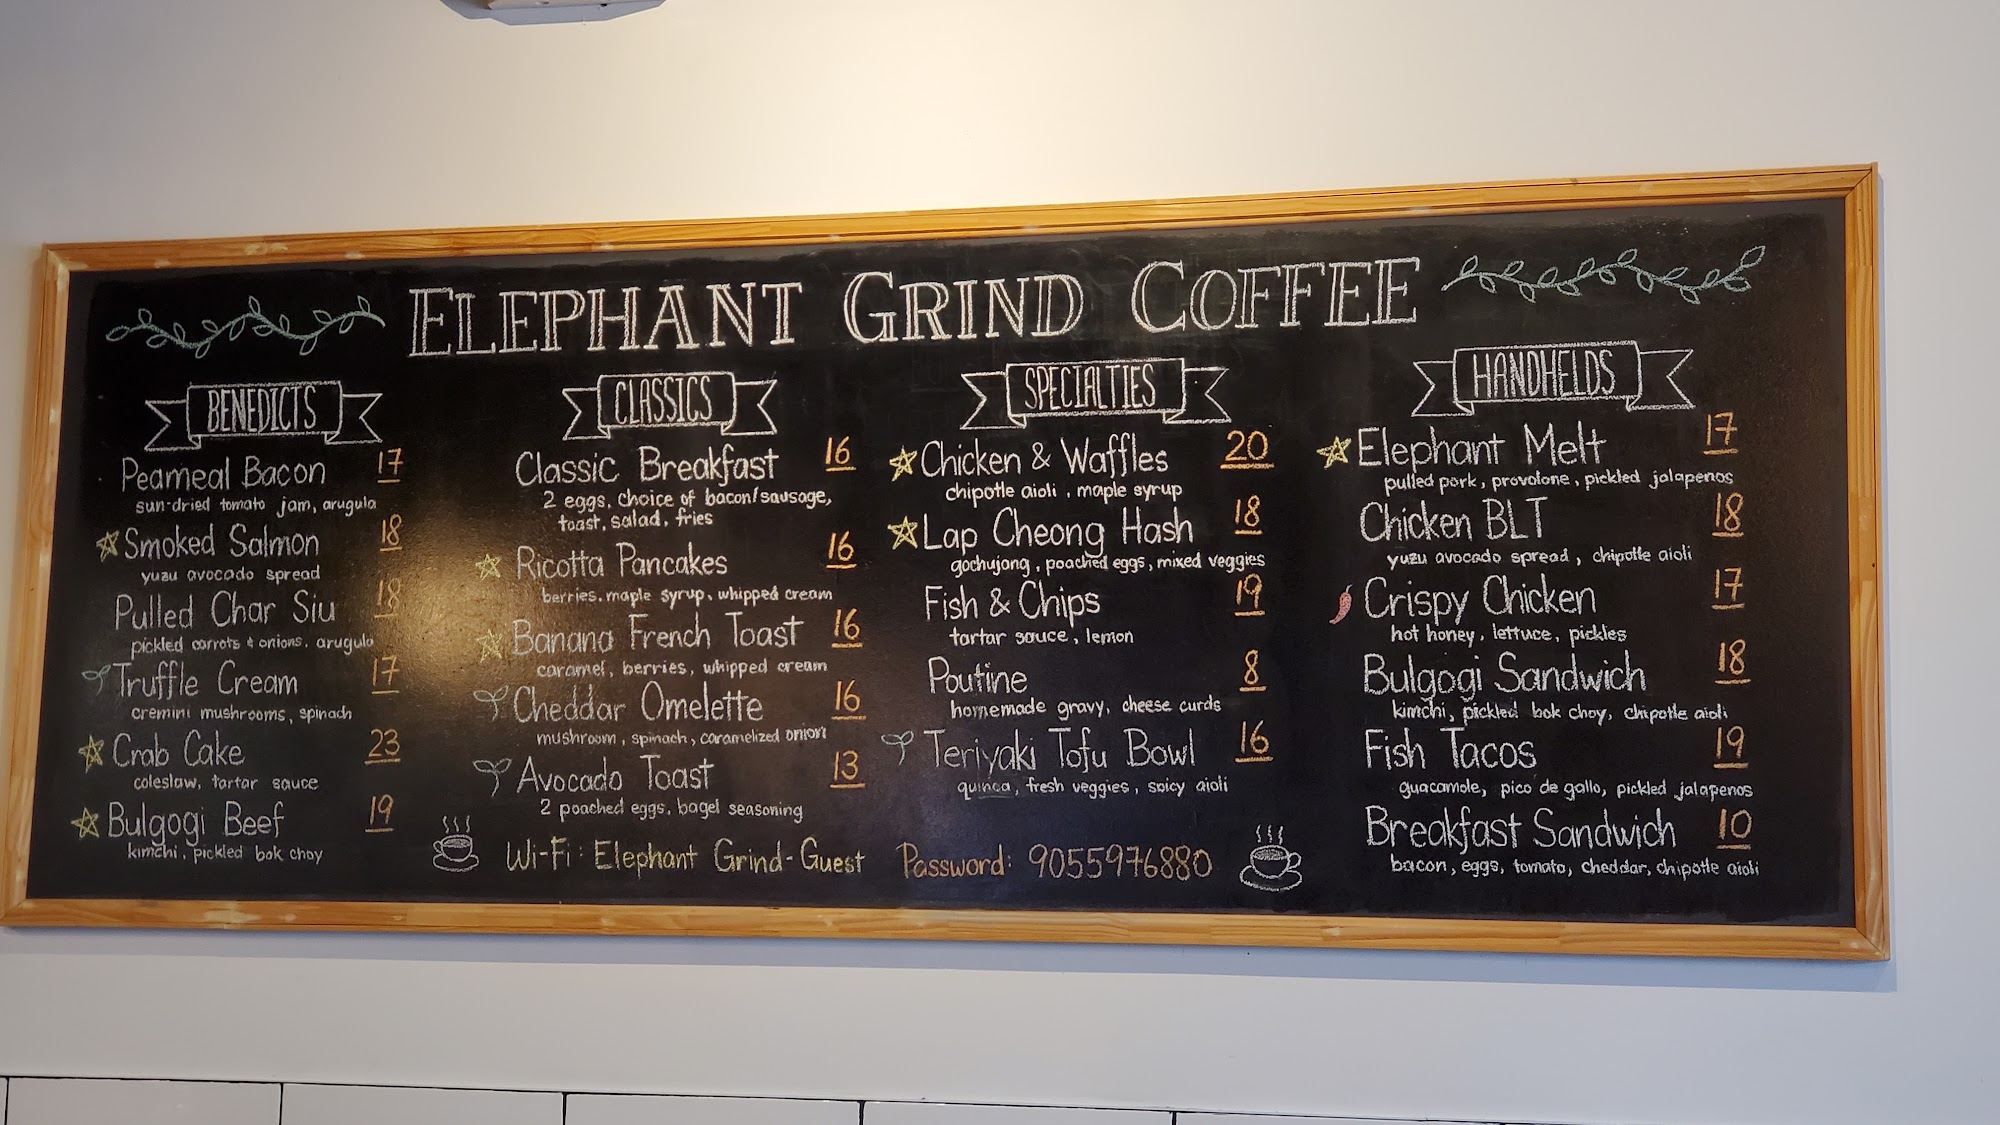 ELEPHANT GRIND COFFEE
BENEDICTS
Peameal Bacon 17
sun-dried tomato jam, arugula
Smoked Salmon 18
yuzu avocado spread
Pulled Char Siu 18
pickled carrots & onions, arugula
Truffle Cream 17
cremini mushrooms, spinach
Crab Cake 23
coleslaw, tartar sauce
Bulgogi Beef 19
kimchi, pickled bok choy
CLASSICS
Classic Breakfast 16
2 eggs, choice of bacon/sausage,
toast, salad, fries
Ricotta Pancakes 16
berries, maple syrup, whipped cream
Banana French Toast 16
caramel, berries, whipped cream
Cheddar Omelette 16
mushroom, spinach, caramelized onion
Avocado Toast 13
2 poached eggs, bagel seasoning
SPECIALTIES
Chicken & Waffles 20
chipotle aioli, maple syrup
Lap Cheong Hash 18
gochujang, poached eggs, mixed veggies
Fish & Chips 19
tartar sauce, lemon
Poutine 8
homemade gravy, cheese curds
Teriyaki Tofu Bowl 16
quinoa, fresh veggies, spicy aioli
HANDHELDS
Elephant Melt 17
pulled pork, provolone, pickled jalapenos
Chicken BLT 18
yuzu avocado spread, chipotle aioli
Crispy Chicken 17
hot honey, lettuce, pickles
Bulgogi Sandwich 18
kimchi, pickled bok choy, chipotle aioli
Fish Tacos 19
guacamole, pico de gallo, pickled jalapenos
Breakfast Sandwich 10
bacon, eggs, tomato, cheddar, chipotle aioli
Wi-Fi: Elephant Grind-Guest Password: 9055976880